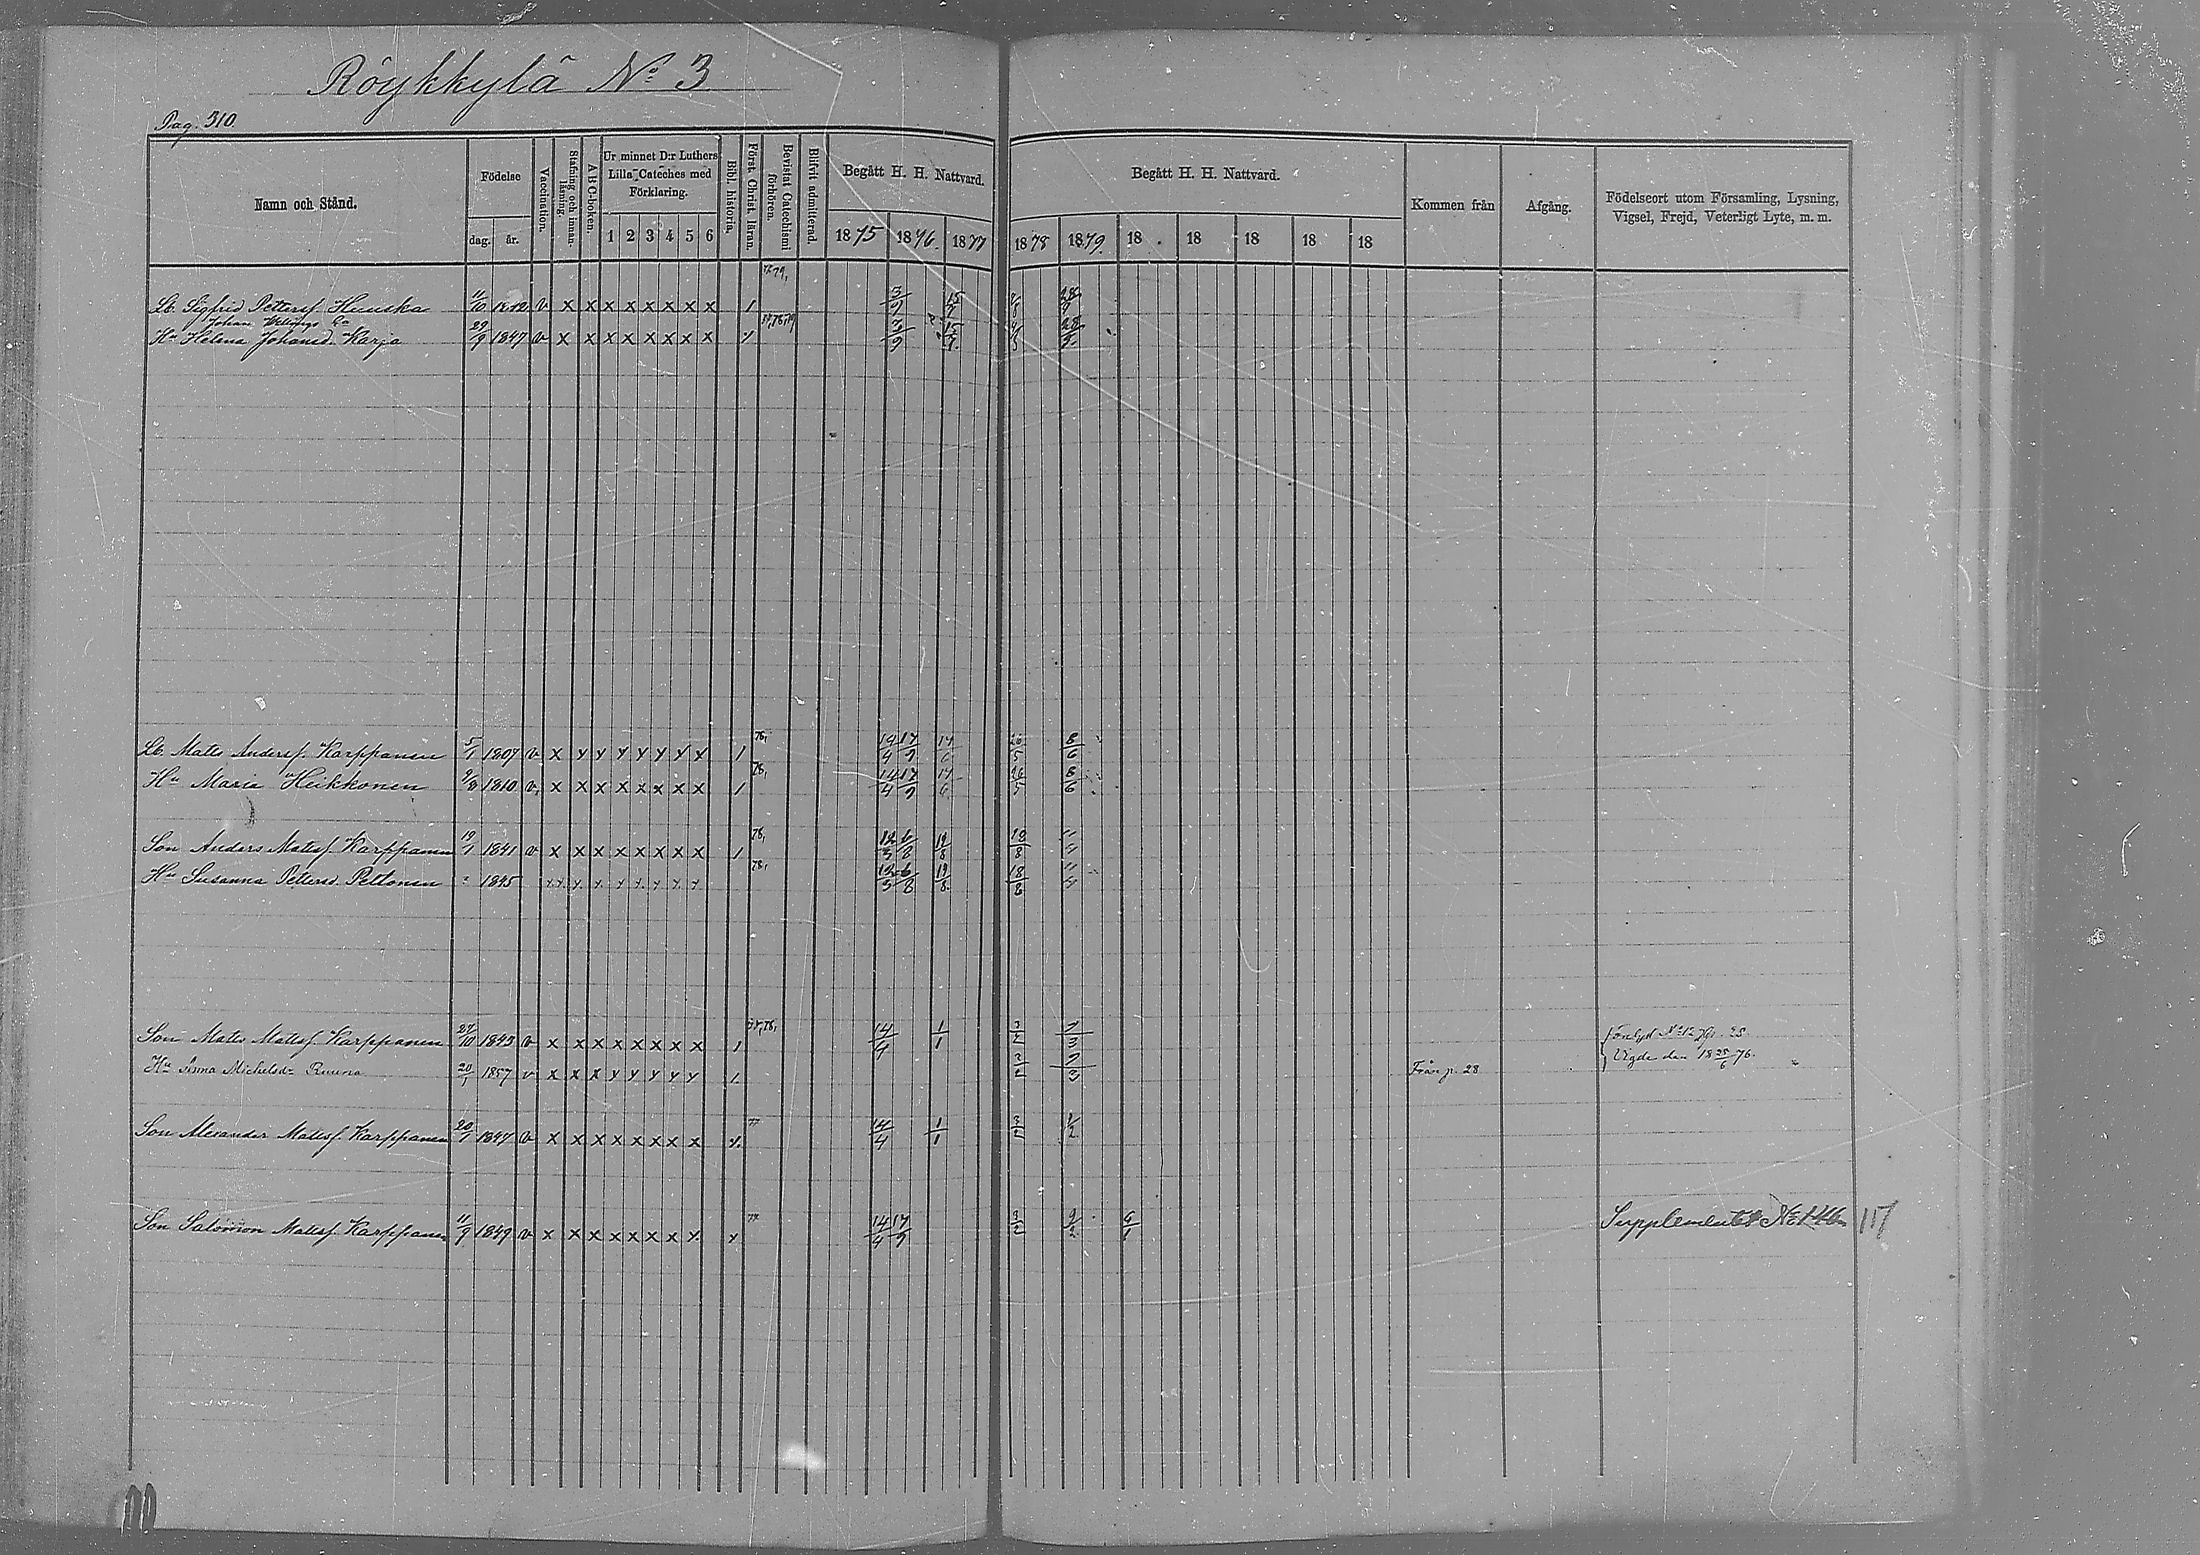 Röykkylä No 3
Pag. 310.
Namn och Stånd.
Födelse
dag. år.
Vaccination.
Stafning och innanläsning
A B C-boken.
Ur minnet D:r Luthers Lilla Cateches med Förklaring.
1 2 3 4 5 6
Bibl. historia.
Först. Christ. läran.
Bevistat Catechismi förhören.
Blifvit admitterad.
Begått H. H. Nattvard.
1875 1876. 1877
Begått H. H. Nattvard.
1878 1879. 18 18 18 18 18
Kommen från
Afgång.
Födelseort utom Församling, Lysning, Vigsel, Frejd, Veterligt Lyte, m. m.
Lb. Sigfrid Pettersf. Huuska 11/10 1842 v x x x x x x x x x 1 3/9 15/7 28/9
Hu Helena Johansd. Karja 29/9 1847 v x x x x x x x x x 3/9 15/7 28/9
Lb. Matts Andersf. Karppanen 5/1 1807 v x y y y y y y y 1 78, 14/4 17/9 17/6 26/5 8/6
Hu Maria Heikkonen 9/8 1810 v. x x x x x x x x 1 78, 14/4 17/9 17/6 26/5 8/6
Son Anders Mattsf. Karppanen 19/1 1841 v x x x x x x x x 1 78, 12/3 6/8 19/8 18/8 "
Hu Susanna Pettersd. Peltonen 1845 78, 12/3 6/8 19/8 18/8 "
Son Matts Mattsf. Karppanen 27/10 1843 v x x x x x x x x 1 77, 78, 14/4 1/1 3/2 2/3
Hu Anna Michelsdr Ruuna 20/1 1857 v x x x y y y y y 1. 3/2 2/3 Från p. 28 Vigde den 18 25/6 76.
Son Alexander Mattsf. Karppanen 20/1 1847 v x x x x x x x x 77 14/4 1/1 3/2 1/2
Son Salomon Mattsf. Karppanen 11/9 1849 v x x x x x x x x 77 14/4 17/9 3/2 9/2 Supplementet No 117